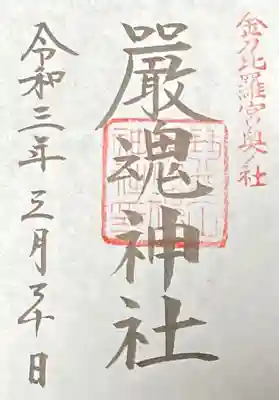 金刀比羅宮奥ノ社
嚴魂神社
令和三年三月 日